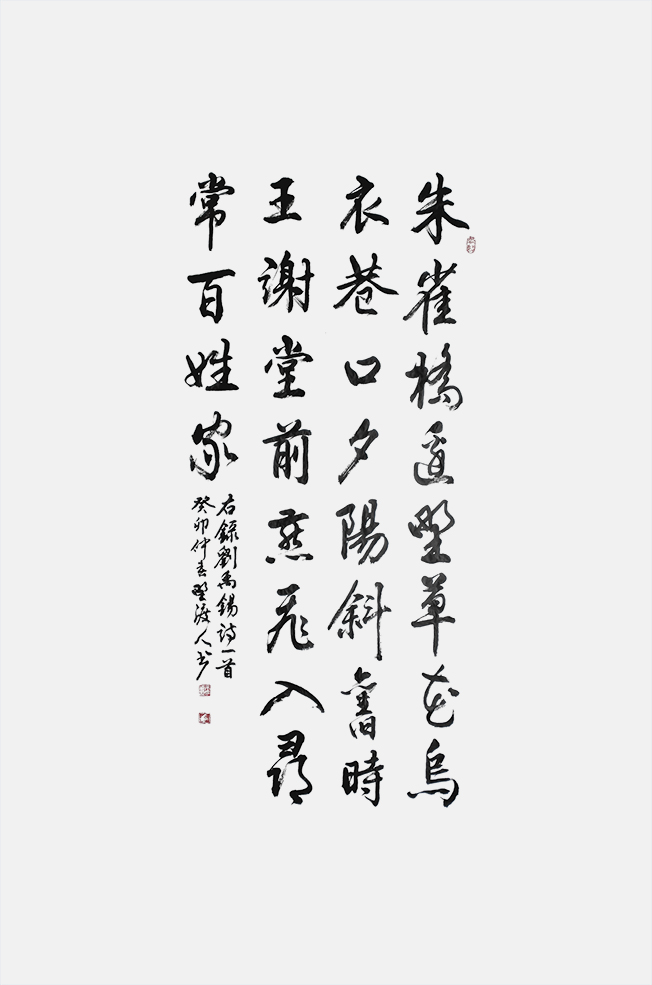 朱雀橋邊野草花烏
衣巷口夕陽斜舊時
王謝堂前燕飛入尋
常百姓家
右錄劉禹錫詩一首
癸卯仲春野渡人書